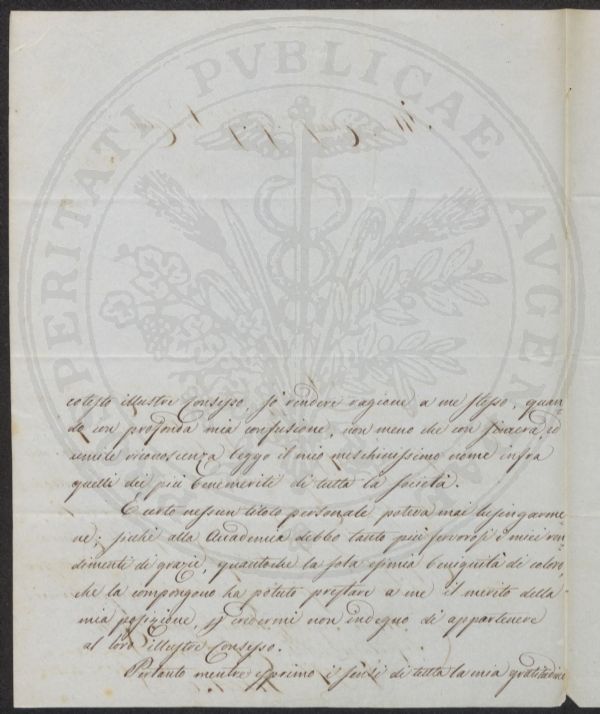 PROSPERITATI PVBLICAE AVGENDAE
cotesto illustre Consesso, so rendere ragione a me stesso, quan-
do con profonda mia confusione, non meno che con sincera, ed
umile riconoscenza leggo il mio meschinissimo nome infra
quelli dei più benemeriti di tutta la Società.
E certo nessun titolo personale poteva mai lusingarme-
ne; sichè alla Accademia debbo tanto più fervorosi i miei ren-
dimenti di grazie, quantochè la sola esimia benignità di coloro,
che la compongono ha potuto prestare a me il merito della
mia posizione, credermi non indegno di appartenere
al loro illustre Consesso.
Pertanto mentre esprimo i sensi di tutta la mia gratitudine